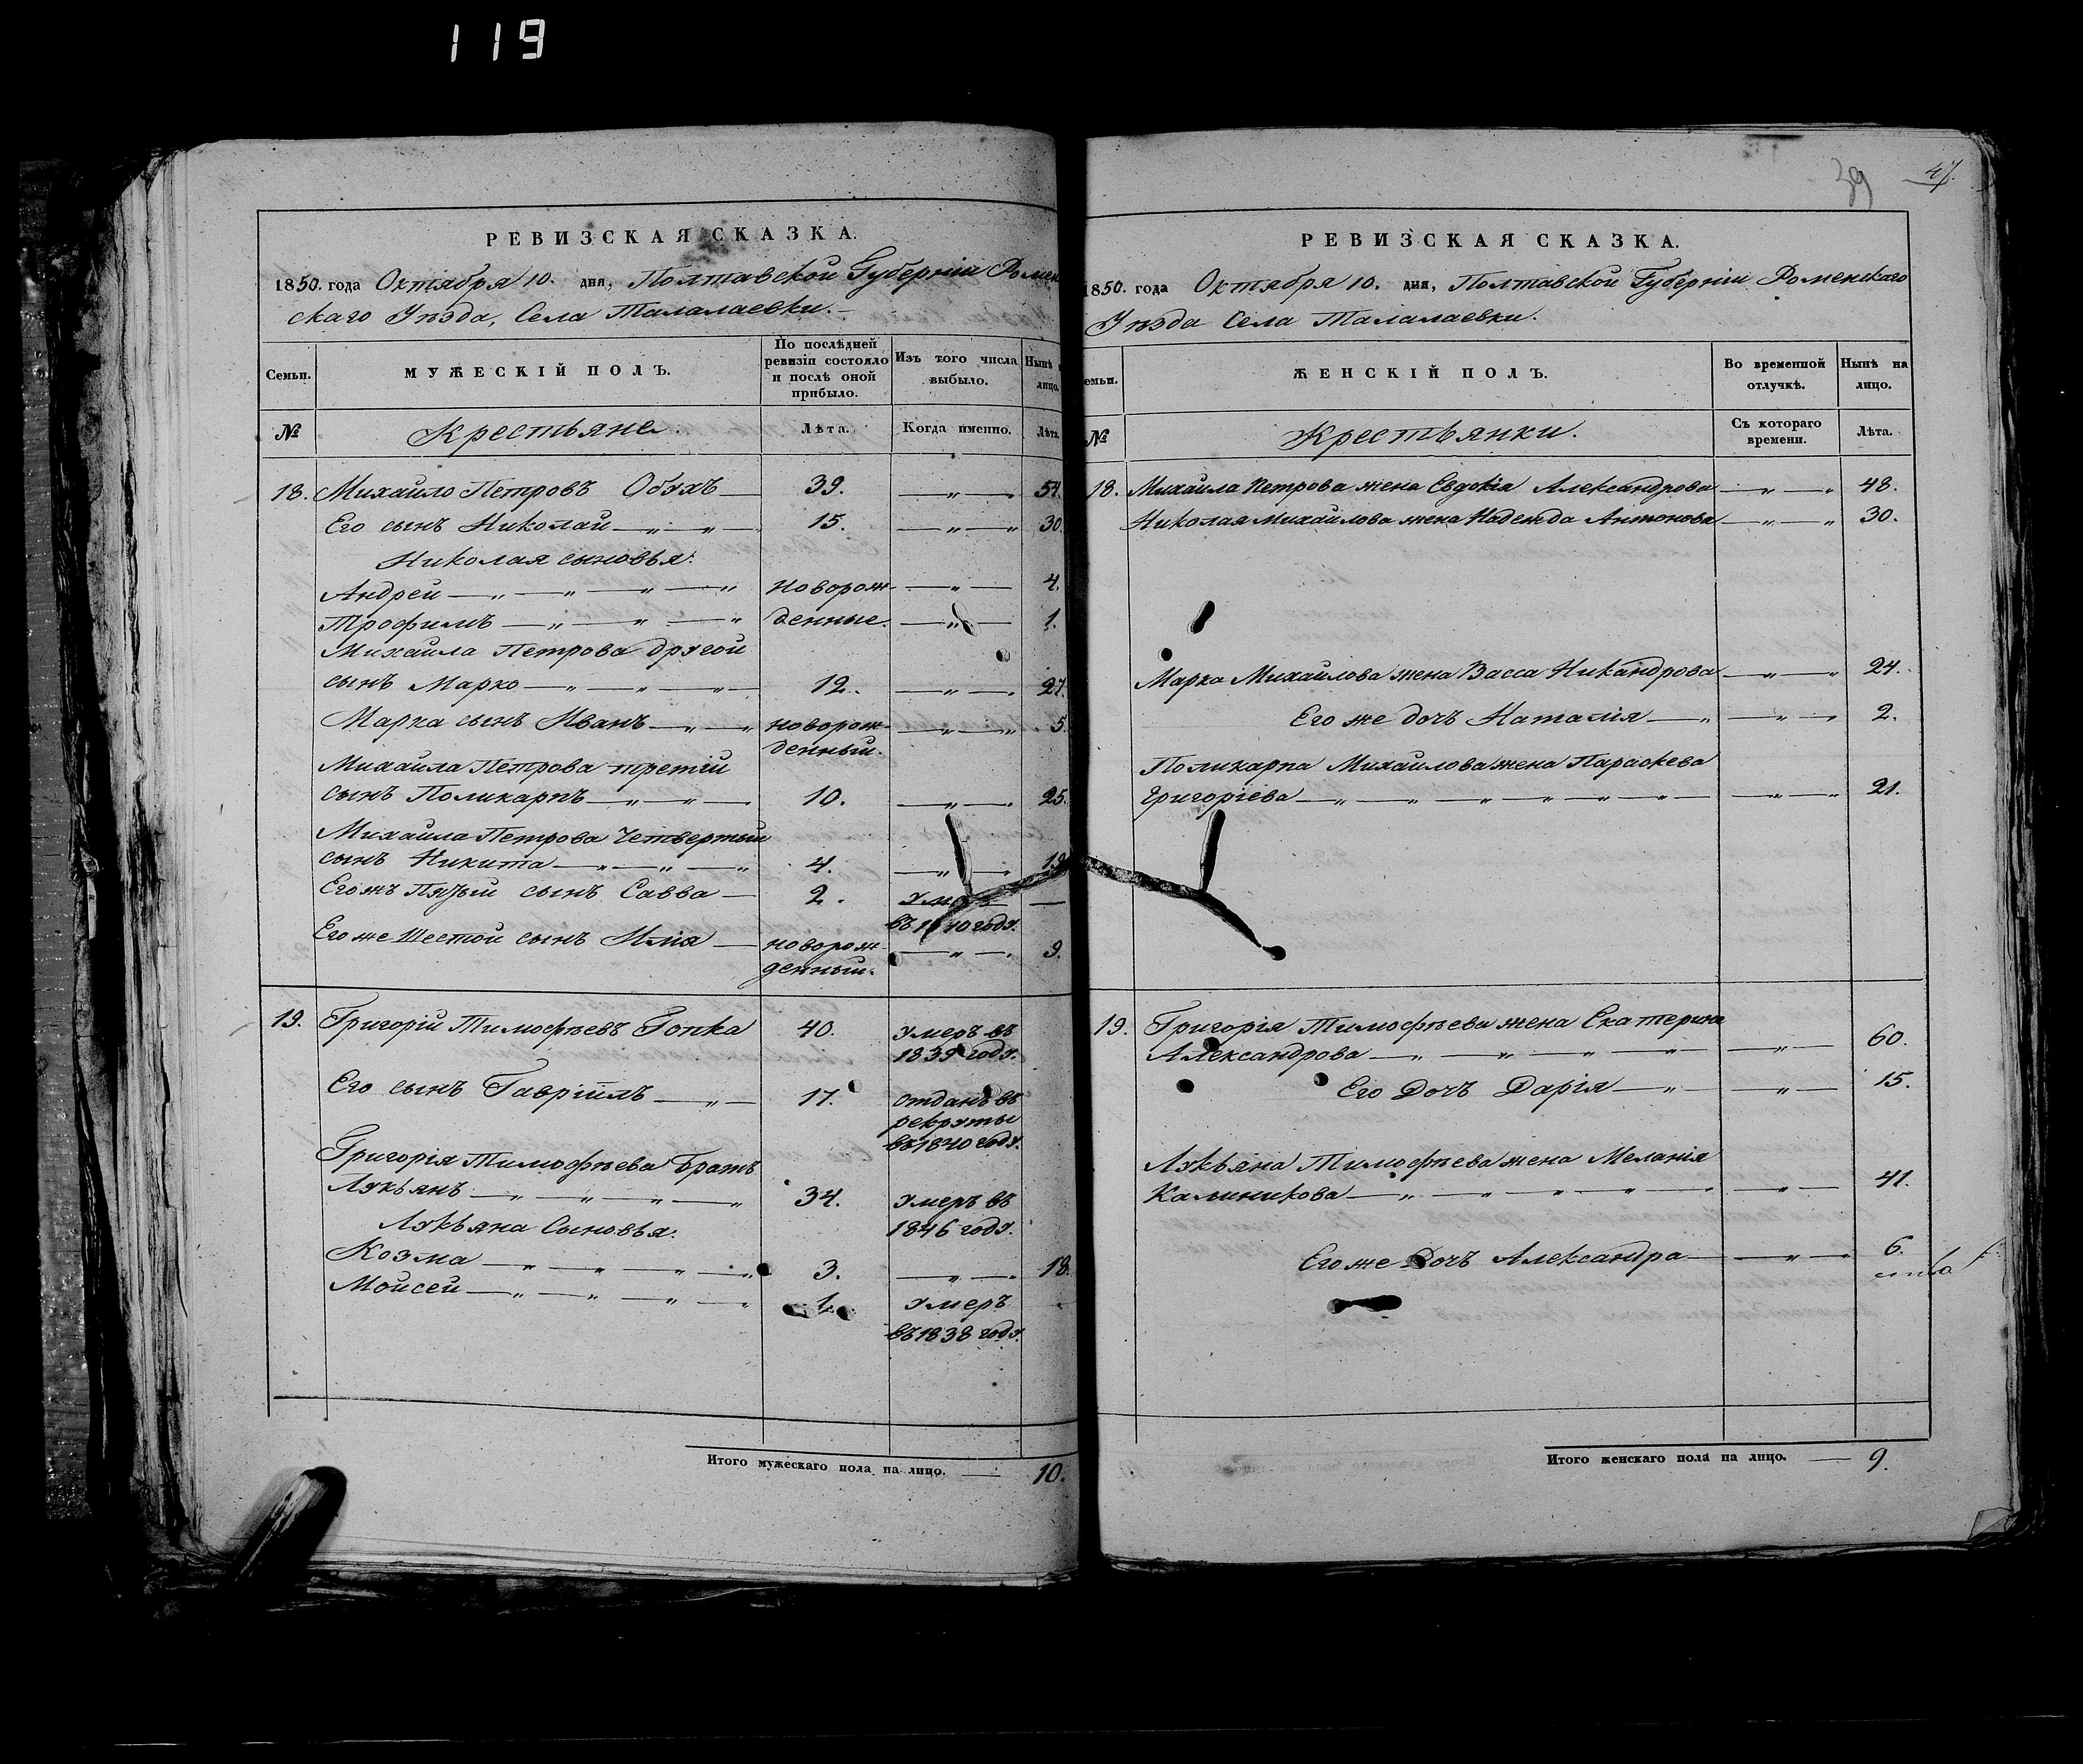 119
РЕВИЗСКАЯ СКАЗКА.
1850. года Октября 10. дня, Полтавской Губернии Ромен
скаго Уѣзда, Села Талалаевки.
Семьи.
МУЖЕСКІЙ ПОЛЪ.
По послѣдней ревизіи состояло и послѣ оной прибыло.
Изъ того числа выбыло.
Нынѣ лицо.
№
Крестьяне.
Лѣта.
Когда именно.
Лѣта.
18. Михайло Петровъ Обухъ 39. — " — 54.
Его сынъ Николай — " — " 15. — " — " 30.
Николая сыновья:
Андрей — " — " — " — " Новорож- — " — 4.
Трофимъ — " — " — " денные. — " — 1.
Михаила Петрова другой
сынъ Марко — " — " — " — 12. — " — 27.
Марка сынъ Иванъ — " — " новорож- — " — " 5.
денный.
Михаила Петрова третій
сынъ Поликарпъ — " — " — 10. — " — 25.
Михаила Петрова Четвертый
сынъ Никита — " — " — " 4. — " — 19.
Егожъ Пятый сынъ Савва — 2. —
въ 1840 году.
Его же Шестой сынъ Илія — новорож- — " — 9.
денный.
19. Григорій Тимофѣевъ Гопка 40. Умеръ въ
1839 году.
Его сынъ Гавріилъ — " — 17. отданъ въ
рекруты
въ 1840 году.
Григорія Тимофѣева братъ
Лукьянъ — " — " — " — " 34. Умеръ въ
Лукьяна Сыновья: 1846 году.
Козма — " — " — " — " 3. — " — " 18.
Мойсей — " — " — " — " 1. Умеръ
въ 1838 году.
Итого мужескаго пола на лицо. — 10.
39 47.
РЕВИЗСКАЯ СКАЗКА.
1850. года Октября 10. дня, Полтавской Губерніи Роменскаго
Уѣзда Села Талалаевки.
емьи.
ЖЕНСКІЙ ПОЛЪ.
Во временной отлучкѣ.
Нынѣ на лицо.
№
Крестьянки.
Съ котораго времени.
Лѣта.
18. Михайла Петрова жена Евдокія Александрова — " — " 48.
Николая Михайлова жена Надежда Антонова — " — " 30.
Марка Михайлова жена Васса Никандрова — " — " 24.
Его же дочъ Наталія — " — " — " 2.
Поликарпа Михайлова жена Параскева
Григоріева — " — " — " — " — " — " — " — " 21.
19. Григорія Тимофѣева жена Екатерина
Александрова — " — " — " — " — " — 60.
Его Дочъ Дарія — " — " — 15.
Лукьяна Тимофѣева жена Меланія
Калиникова — " — " — " — " — " — " — 41.
Его же Дочъ Александра — " — " 6.
Итого женскаго пола на лицо. — 9.